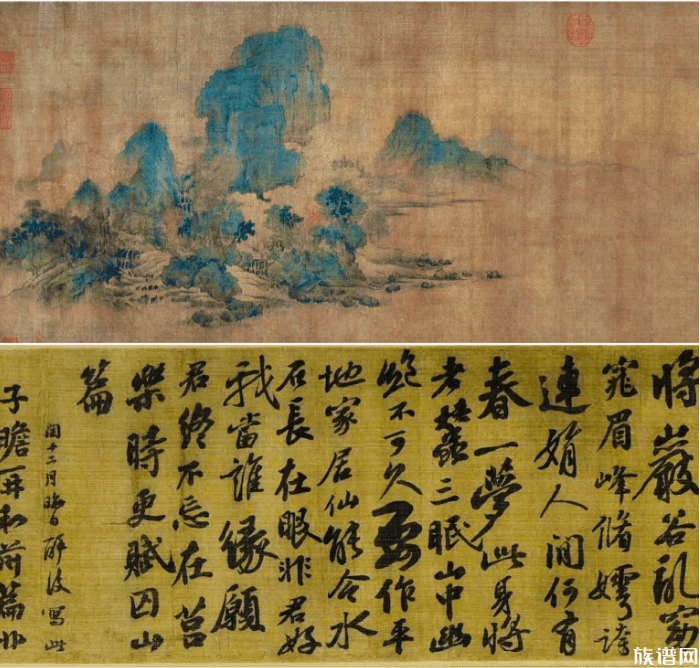 將山巖谷亂窈
窕眉峰脩嫮誇
連娟人間何有
春一夢此身將
老蠶三眠山中幽
絶不可久要作平
地家居仙能令水
石長在眼非君好
我當誰緣願
君終不忘在莒
樂時更賦囚山
篇
閏十二月晦日醉後寫此
子瞻再和前篇非
族谱网